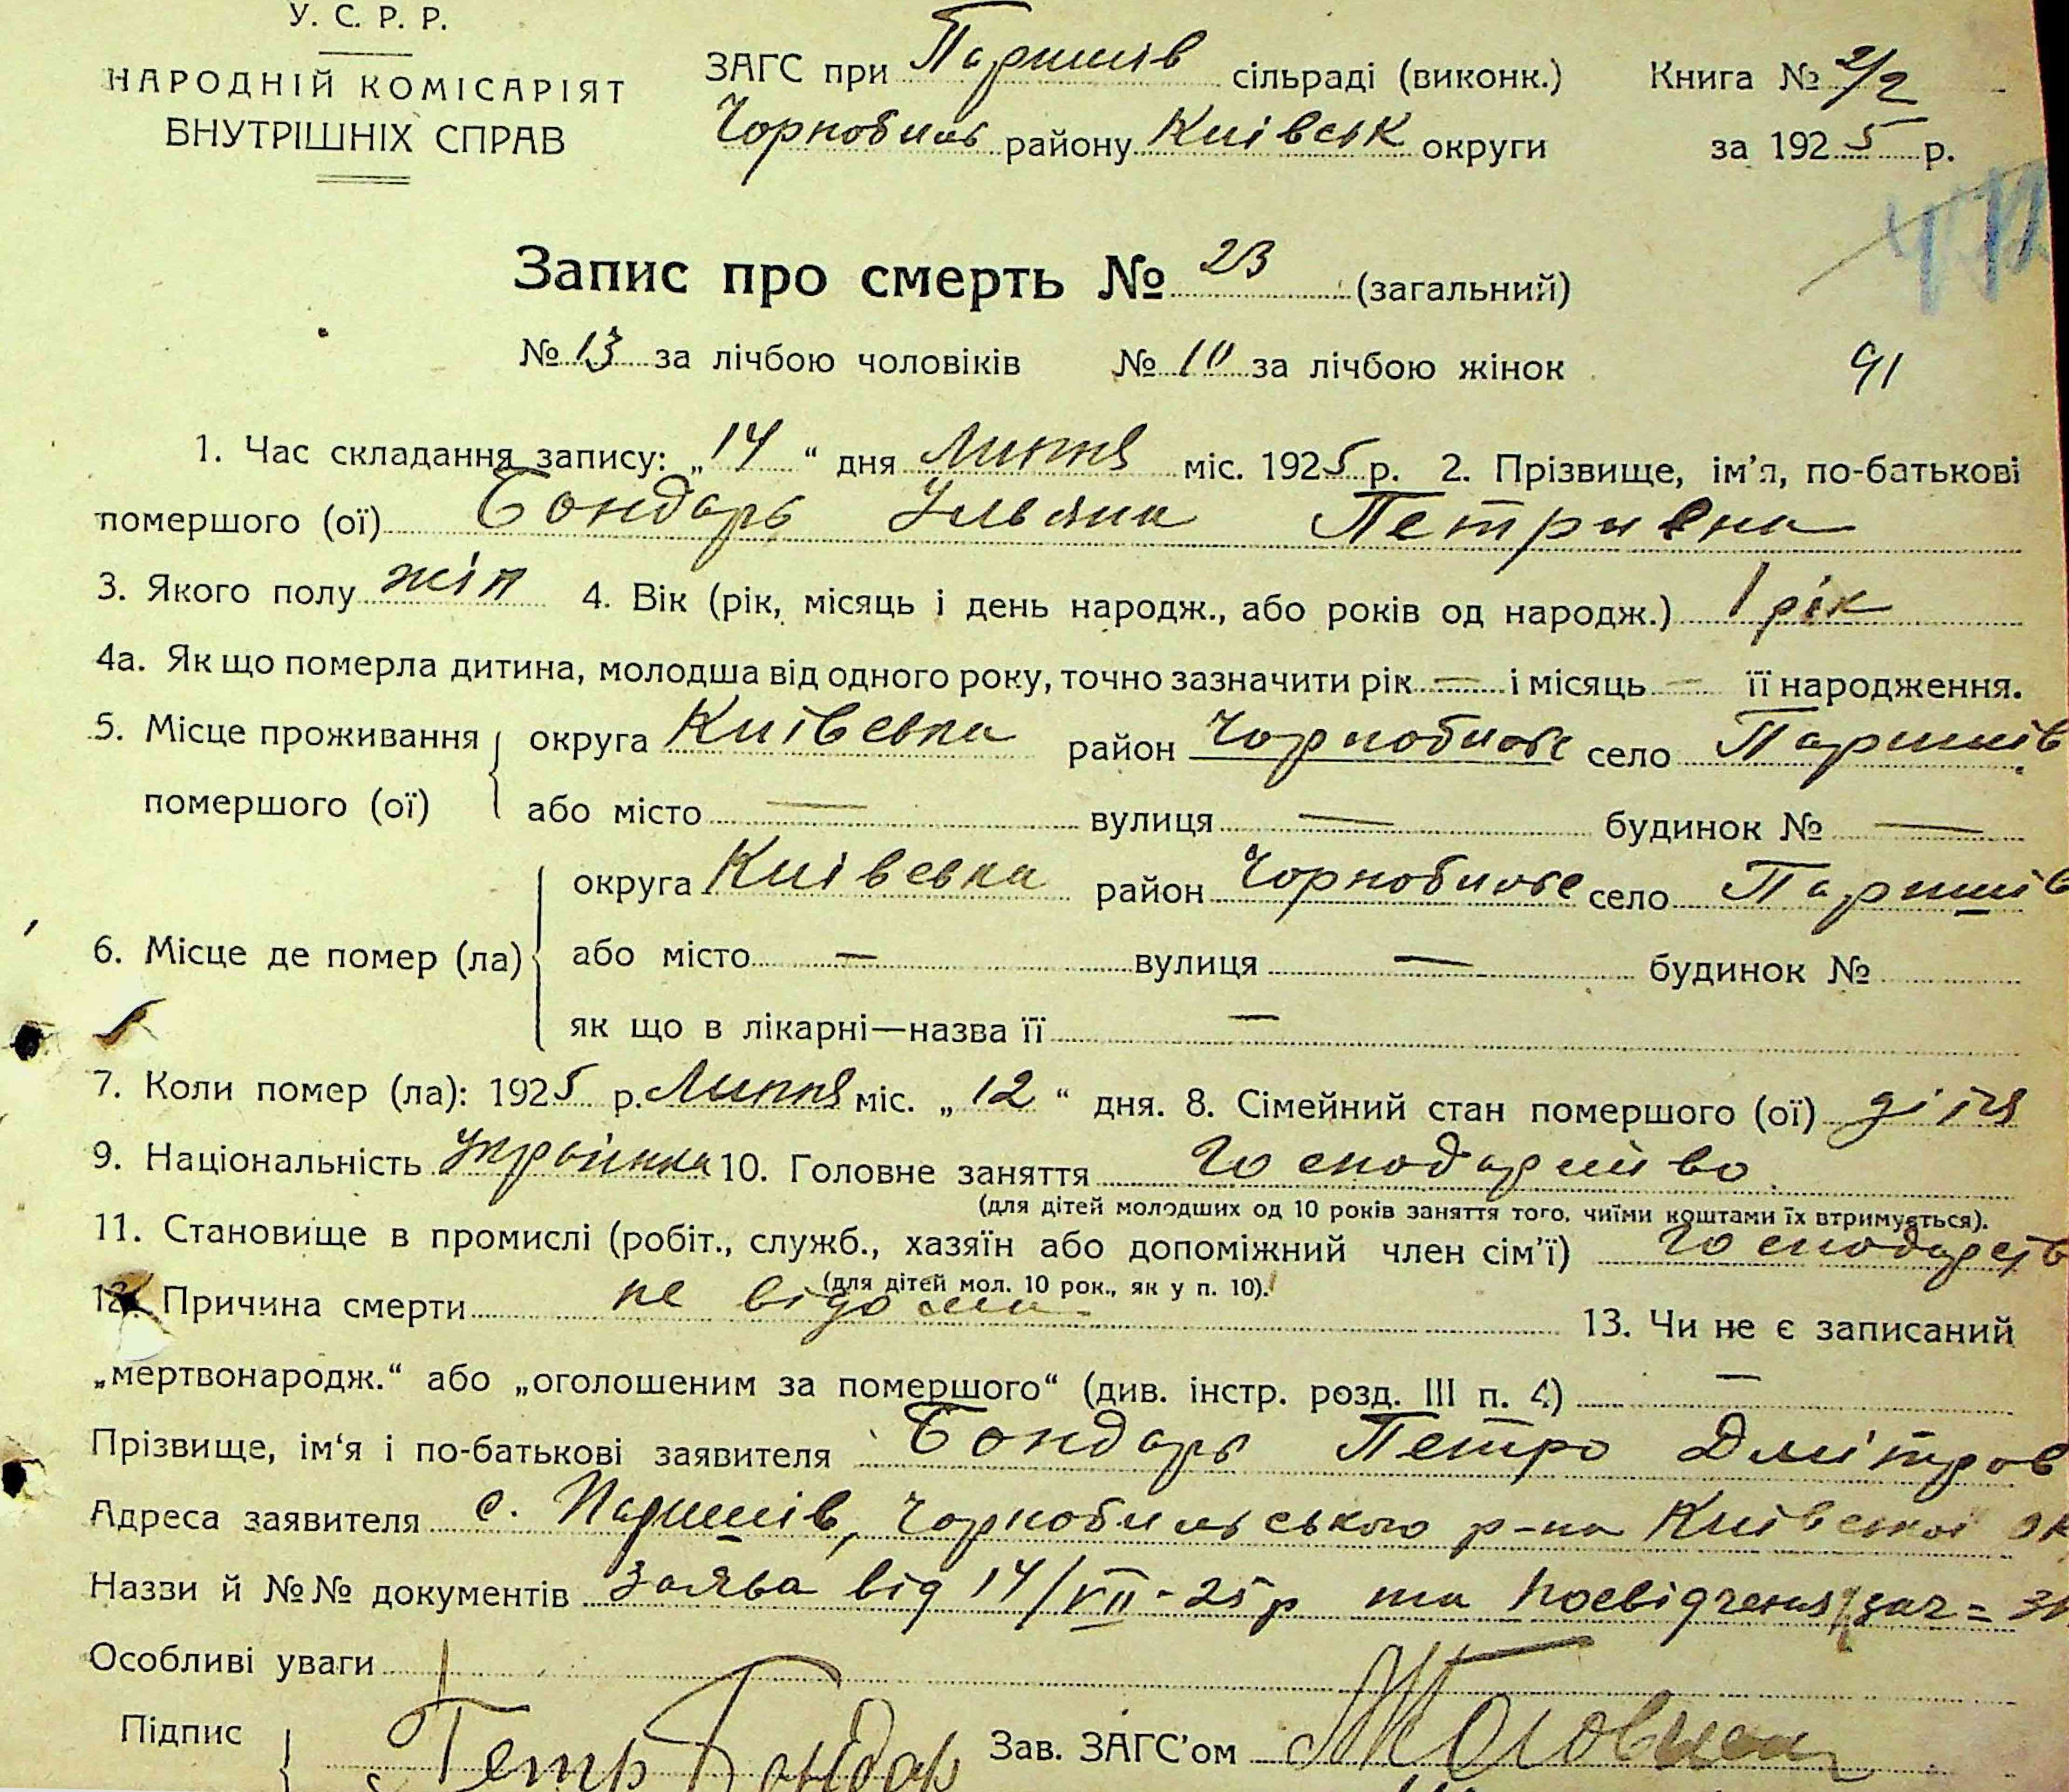 У. С. Р. Р.
НАРОДНІЙ КОМІСАРІЯТ
ВНУТРІШНІХ СПРАВ
ЗАГС при Паришів сільраді (виконк.)
Чорнобиль району Київськ округи
Книга № 2/2
за 1925 р.
Запис про смерть № 23 (загальний)
№ 13 за лічбою чоловіків № 10 за лічбою жінок
91
1. Час складання запису: „14“ дня Липня міс. 1925 р. 2. Прізвище, ім'я, по-батькові
помершого (ої) Бондарь Ульяна Петривна
3. Якого полу жін 4. Вік (рік, місяць і день народж., або років од народж.) 1 рік
4а. Як що померла дитина, молодша від одного року, точно зазначити рік — і місяць — її народження.
5. Місце проживання округа Київська район Чорнобильс село Паришів
помершого (ої) або місто — вулиця — будинок № —
округа Київська район Чорнобильс село Паришів
6. Місце де помер (ла) або місто — вулиця — будинок №
як що в лікарні—назва її —
7. Коли помер (ла): 1925 р. Липня міс. „12“ дня. 8. Сімейний стан помершого (ої) дітя
9. Національність Украінка 10. Головне заняття Господарство
(для дітей молодших од 10 років заняття того, чиїми коштами їх втримується).
11. Становище в промислі (робіт., служб., хазяїн або допоміжний член сім'ї)
(для дітей мол. 10 рок., як у п. 10).
12. Причина смерти не відома 13. Чи не є записаний
„мертвонародж.“ або „оголошеним за помершого“ (див. інстр. розд. III п. 4) —
Прізвище, ім'я і по-батькові заявителя Бондарь Петро Дмітров
Адреса заявителя с. Паришів, Чорнобильського р-на Київської ок
Назви й №№ документів Заява від 14/VII-25р та
Особливі уваги
Підпис Петр Бондар Зав. ЗАГС'ом